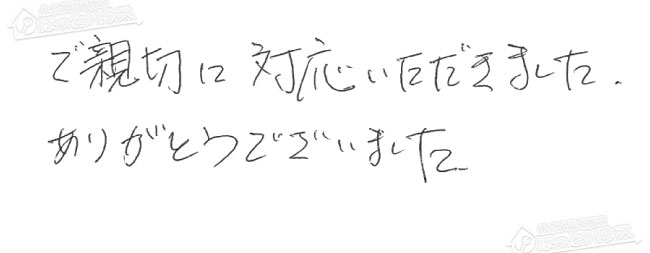 ご親切に対応いただきました.
ありがとうございました